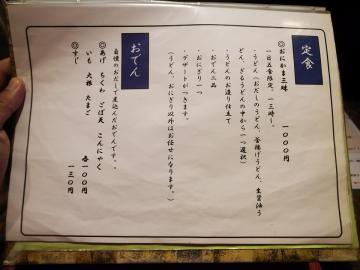 定食
◎おにかま三昧　一〇〇〇円
一日五食限定。一三時～。
・うどん(おだしのうどん、釜揚げうどん、生醤油う
どん、ざるうどんの中から一つ選択)
・うどんのお造り仕立て
・おでん二品
・おにぎり一つ
・デザートがつきます。
(うどん、おにぎり以外はお任せになります。)
おでん
自慢のおだしで煮込んだおでんです。
◎あげ　ちくわ　ごぼ天　こんにゃく
いも　大根　たまご　各一〇〇円
◎すじ　一三〇円